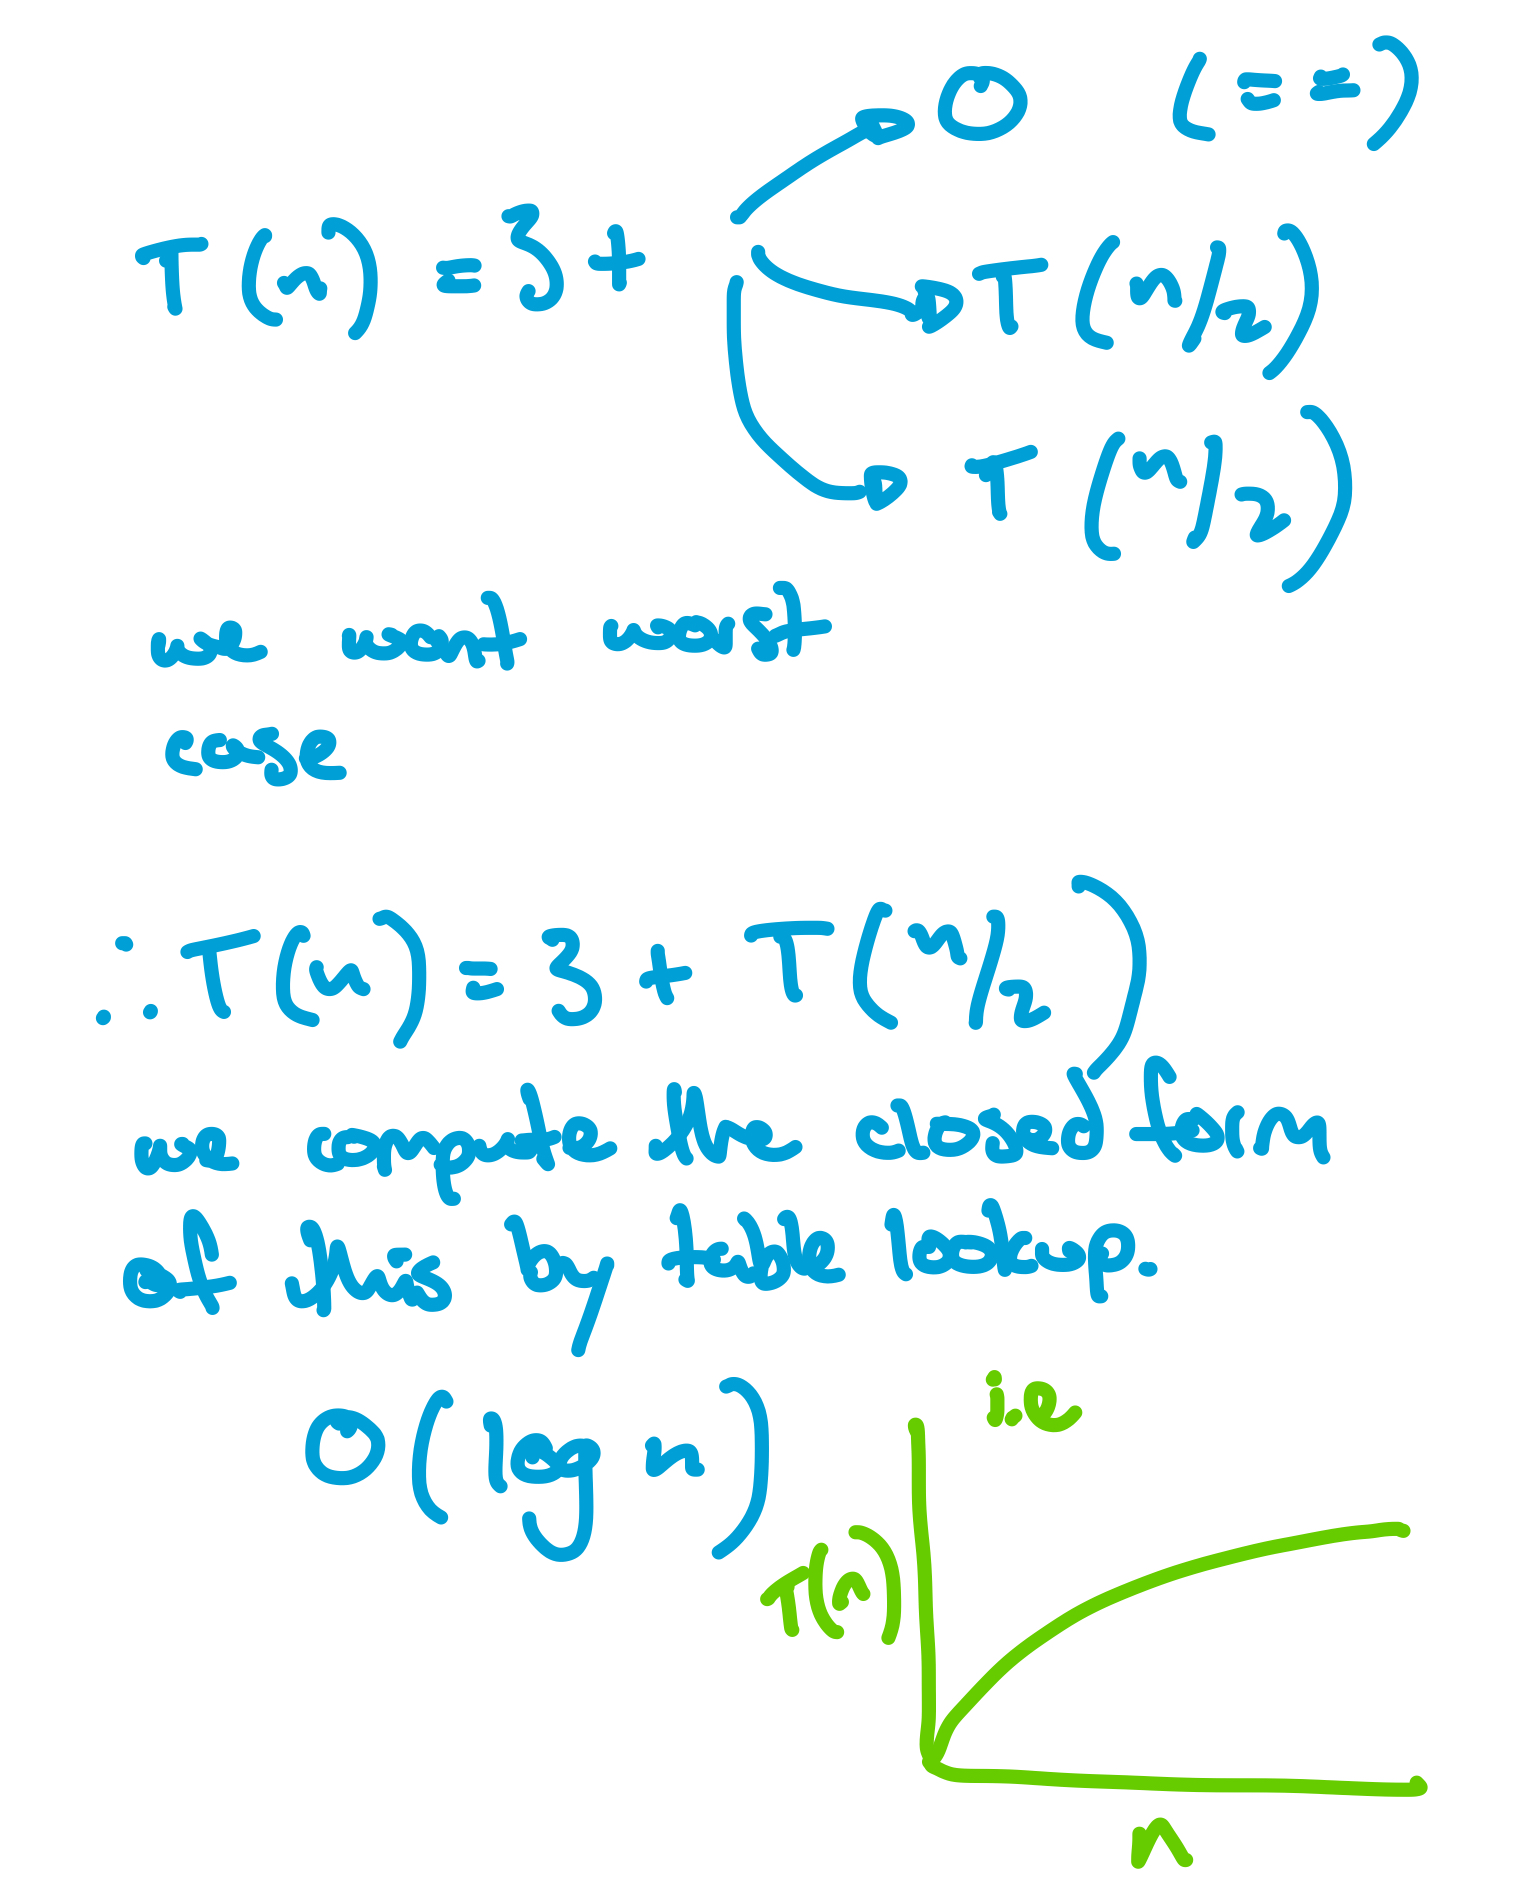 O (==)
T(n) = 3 + T(n/2)
T(n/2)
we want worst
case
∴ T(n) = 3 + T(n/2)
we compute the closed form
of this by table lookup.
O(log n)
i.e
T(n)
n